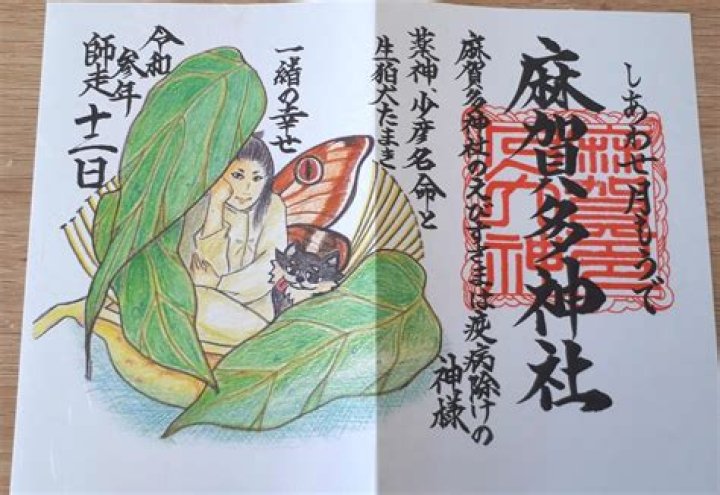 しあわせ月もうで
麻賀多神社
麻賀多神社のえびすさまは疫病除けの
神様
薬神、少彦名命と
生狛犬たまき
一緒の幸せ
令和
参年
師走十二日